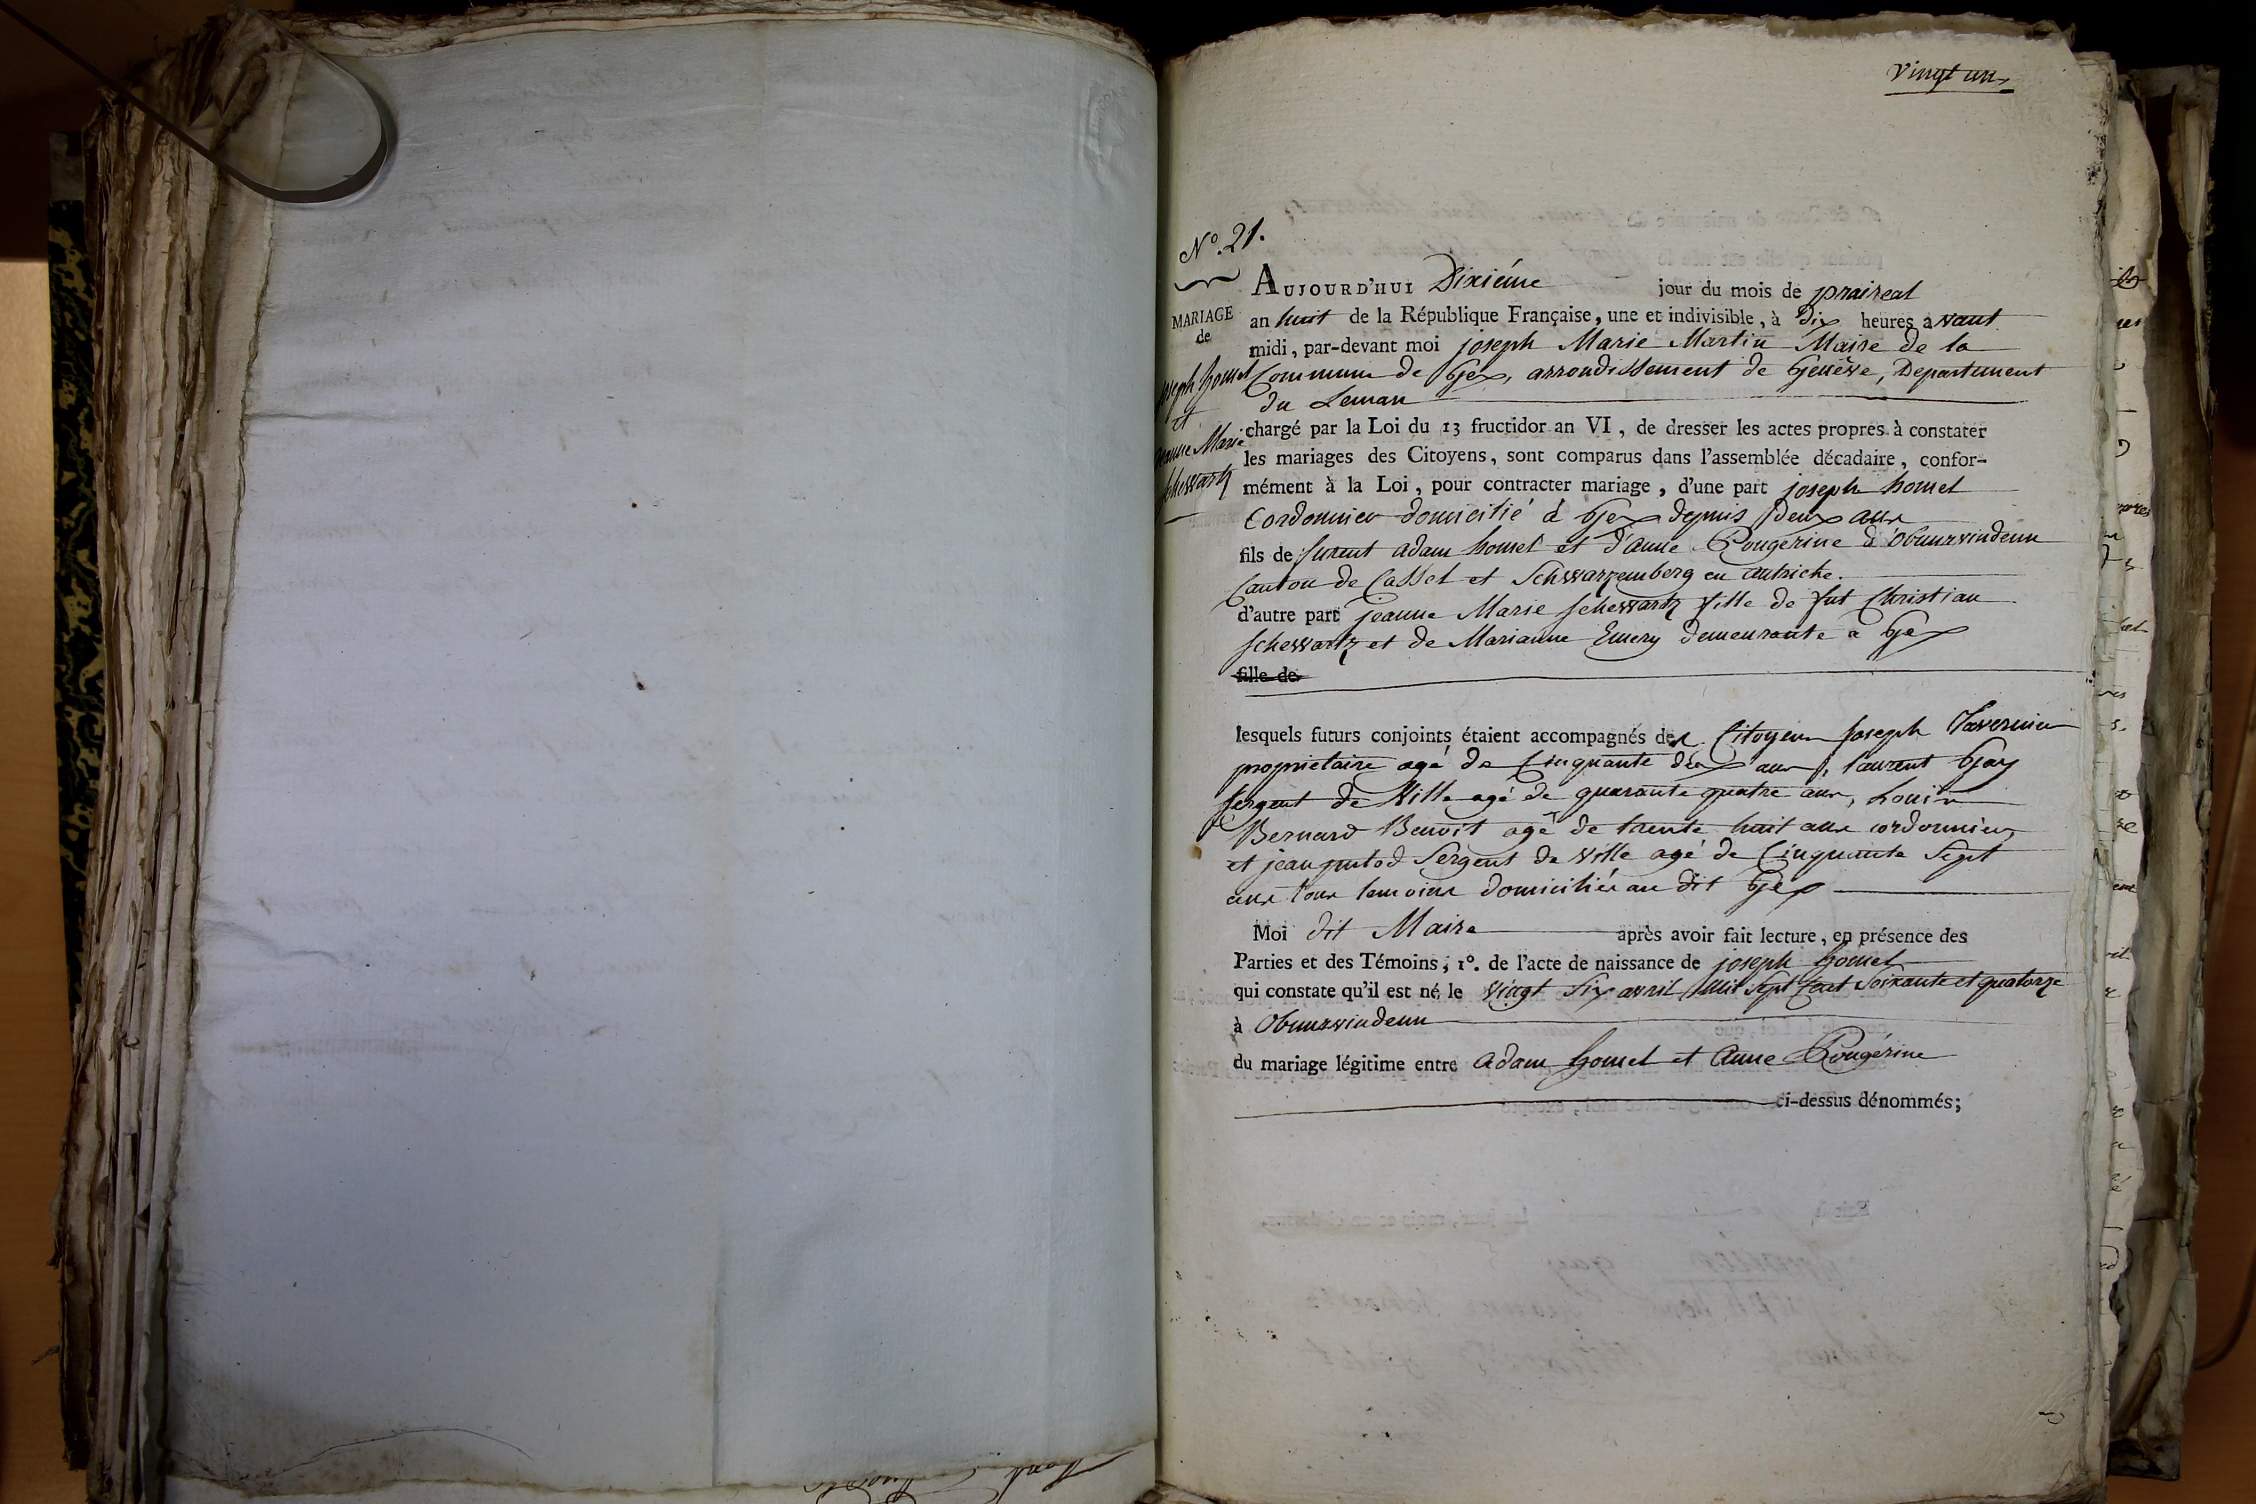 Vingt un
N°. 21.
MARIAGE
de
joseph homel
et
jeanne Marie
schewartz
AUJOURD'HUI Dixiéme jour du mois de praireal
an huit de la République Française, une et indivisible, à dix heures avant
midi, par-devant moi joseph Marie Martin Maire de la
Commune de Gex, arrondissement de Genève, Departement
du Leman
chargé par la Loi du 13 fructidor an VI, de dresser les actes propres à constater
les mariages des Citoyens, sont comparus dans l'assemblée décadaire, confor-
mément à la Loi, pour contracter mariage, d'une part joseph homel
Cordonnier domicilié à Gex depuis deux ans
fils de furent adam homel et d'anne Pougerine d'Obunzvindenn
Canton de Cassel et Schwarzemberg en autriche.
d'autre part jeanne Marie schewartz fille de fut Christian
schewartz et de Marianne Emery demeurante à Gex
fille de
lesquels futurs conjoints étaient accompagnés des Citoyens joseph Tavernier
proprietaire agé de Cinquante deux ans, laurent Gay
sergent de Ville agé de quarante quatre ans, Louis
Bernard Benoit agé de trente huit ans cordonnier
et jean putod Sergent de Ville agé de Cinquante Sept
ans tous temoins domiciliés au dit Gex
Moi dit Maire après avoir fait lecture, en présence des
Parties et des Témoins; 1°. de l'acte de naissance de joseph homel
qui constate qu'il est né le Vingt Six avril Mil Sept Cent Soixante et quatorze
à Obunzvindenn
du mariage légitime entre adam homel et anne Pougérine
ci-dessus dénommés;